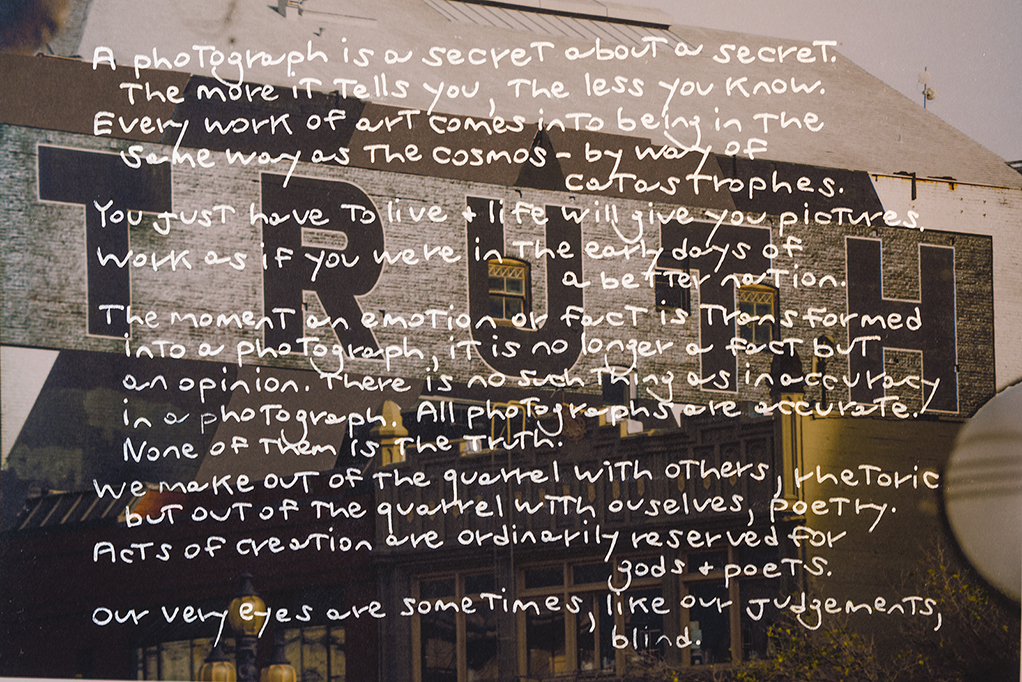 A photograph is a secret about a secret.
The more it tells you, the less you know.
Every work of art comes into being in the
same way as the cosmos – by way of
catastrophes.
You just have to live + life will give you pictures.
Work as if you were in the early days of
a better nation.
The moment an emotion or fact is transformed
into a photograph, it is no longer a fact but
an opinion. There is no such thing as inaccuracy
in a photograph. All photographs are accurate.
None of them is the truth.
We make out of the quarrel with others, rhetoric
but out of the quarrel with ourselves, poetry.
Acts of creation are ordinarily reserved for
gods + poets.
Our very eyes are sometimes, like our judgements,
blind.
TRUTH